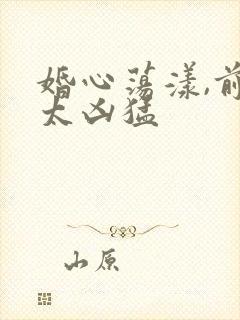 婚心荡漾,前
太凶猛
山原